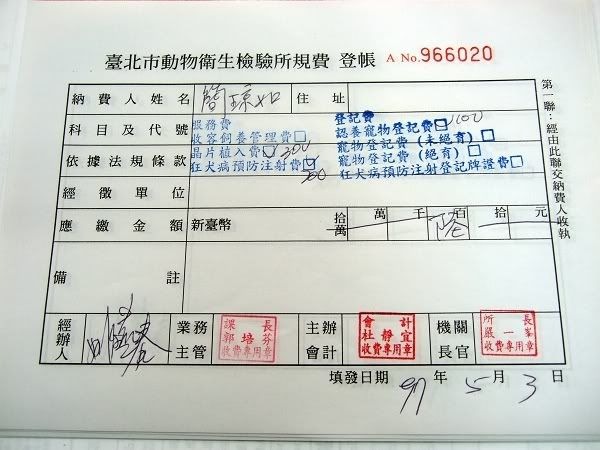 臺北市動物衛生檢驗所規費 登帳 A No.966020
納費人姓名 簡瓊如 住址
科目及代號
服務費
收容飼養管理費□
登記費
認養寵物登記費☑100
寵物登記費(未絕育)□
依據法規條款
晶片植入費☑300
狂犬病預防注射費☑200
寵物登記費(絕育)□
狂犬病預防注射登記牌證費□
經徵單位
應繳金額 新臺幣 拾萬 萬 千 陸百 拾 元
備註
經辦人 業務主管 課長郭培芬收費專用章 主辦會計 會計杜靜宜收費專用章 機關長官 所長嚴一峯收費專用章
填發日期 97年5月3日
第一聯:經由此聯交納費人收執